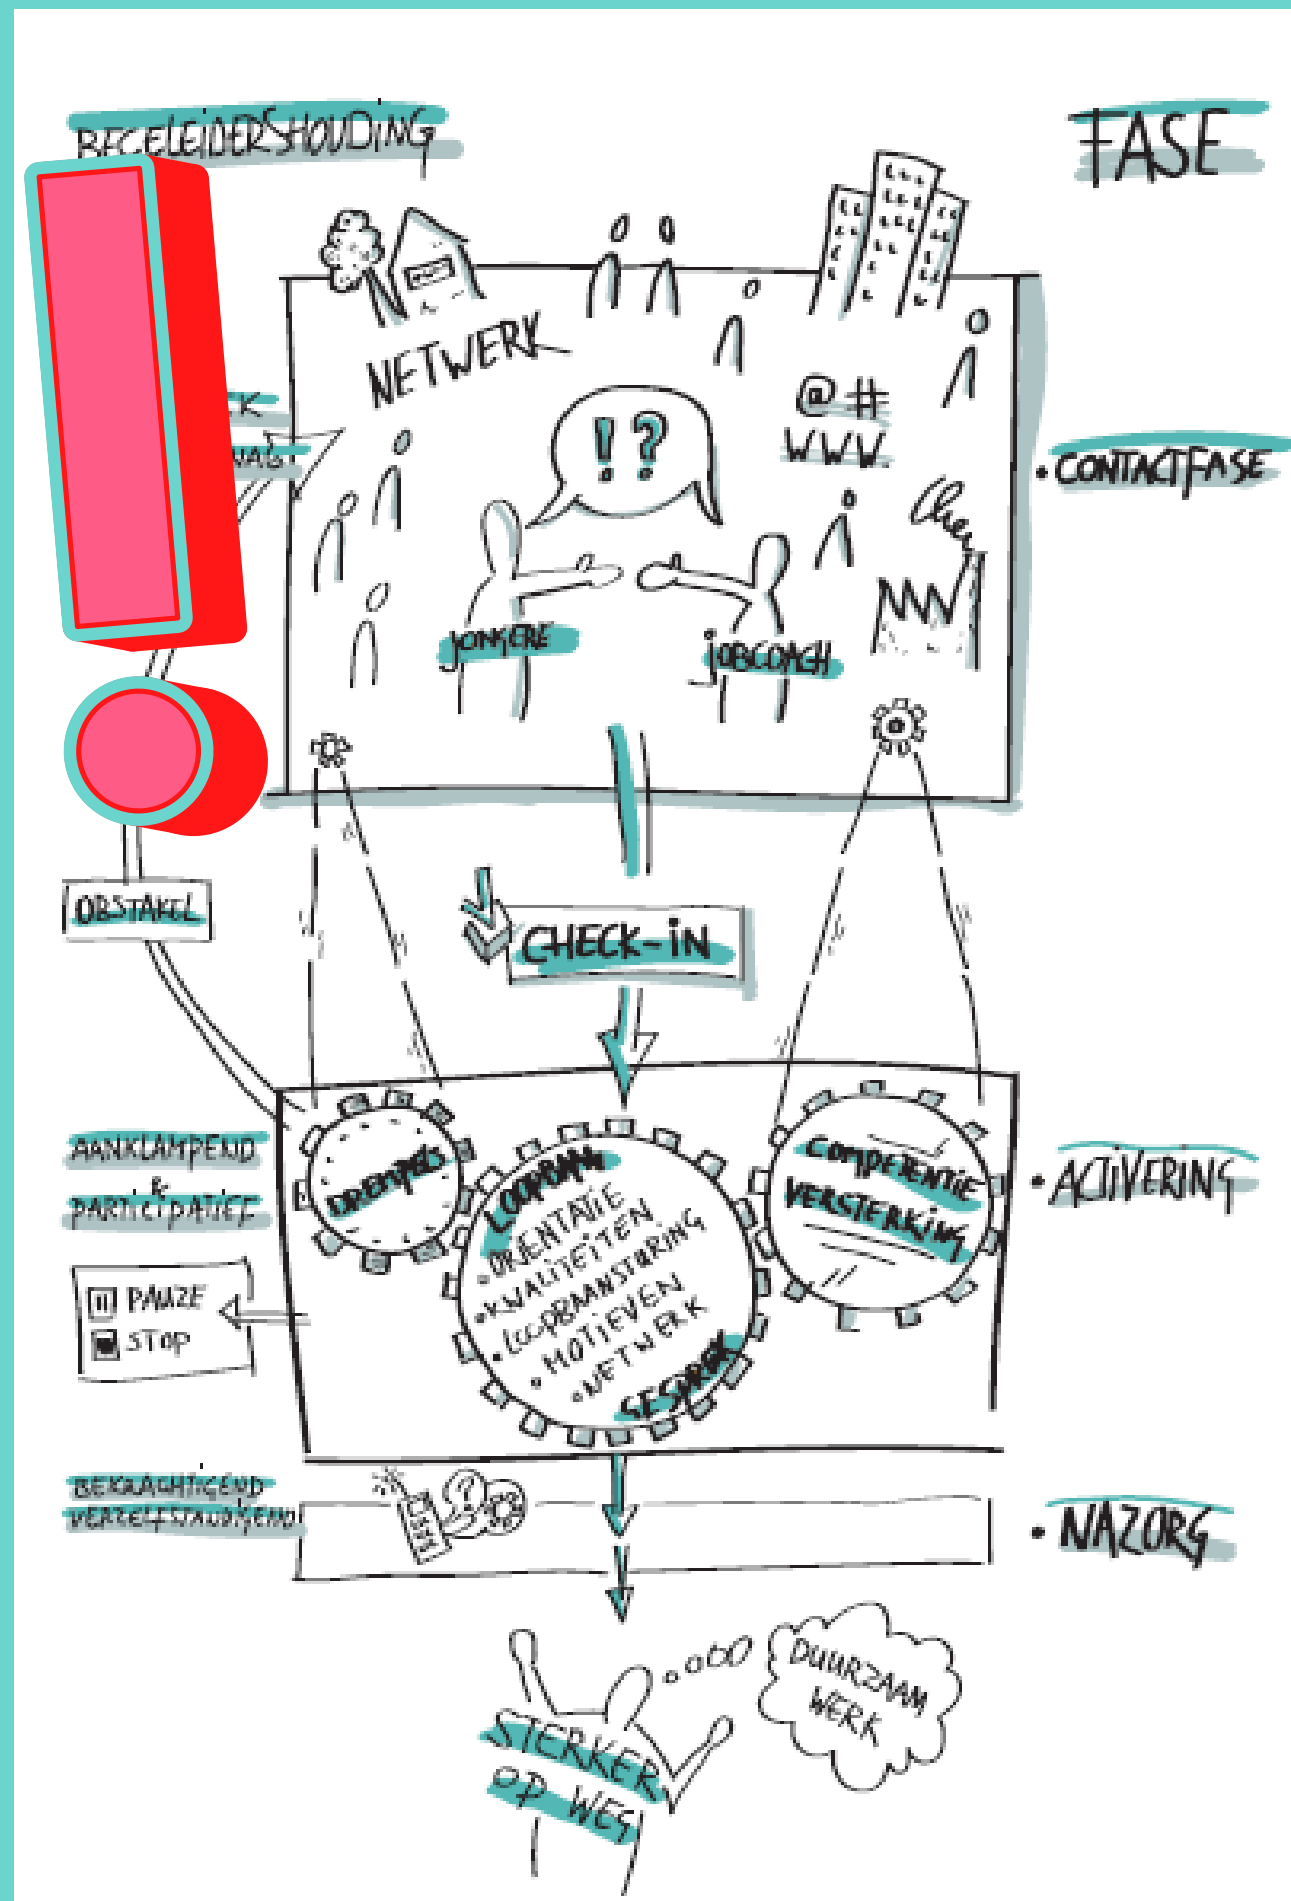 BEGELEIDERSHOUDING
FASE
NETWERK
!?
@ #
WWW.
• CONTACTFASE
JONGERE
jOBCOACH
OBSTAKEL
CHECK-iN
AANKLAMPEND
&
PARTiCiPATiEF
DREMPELS
LOOPBAAN
• ORIËNTATIE
• KWALITEITEN
• LOOPBAANSTURING
• MOTIEVEN
• NETWERK
GESPREK
COMPETENTIE
VERSTERKING
• ACTiVERING
PAUZE
STOP
BEKRACHTIGEND
VERZELFSTANDIGEND
• NAZORG
DUURZAAM
WERK
STERKER
OP WEG